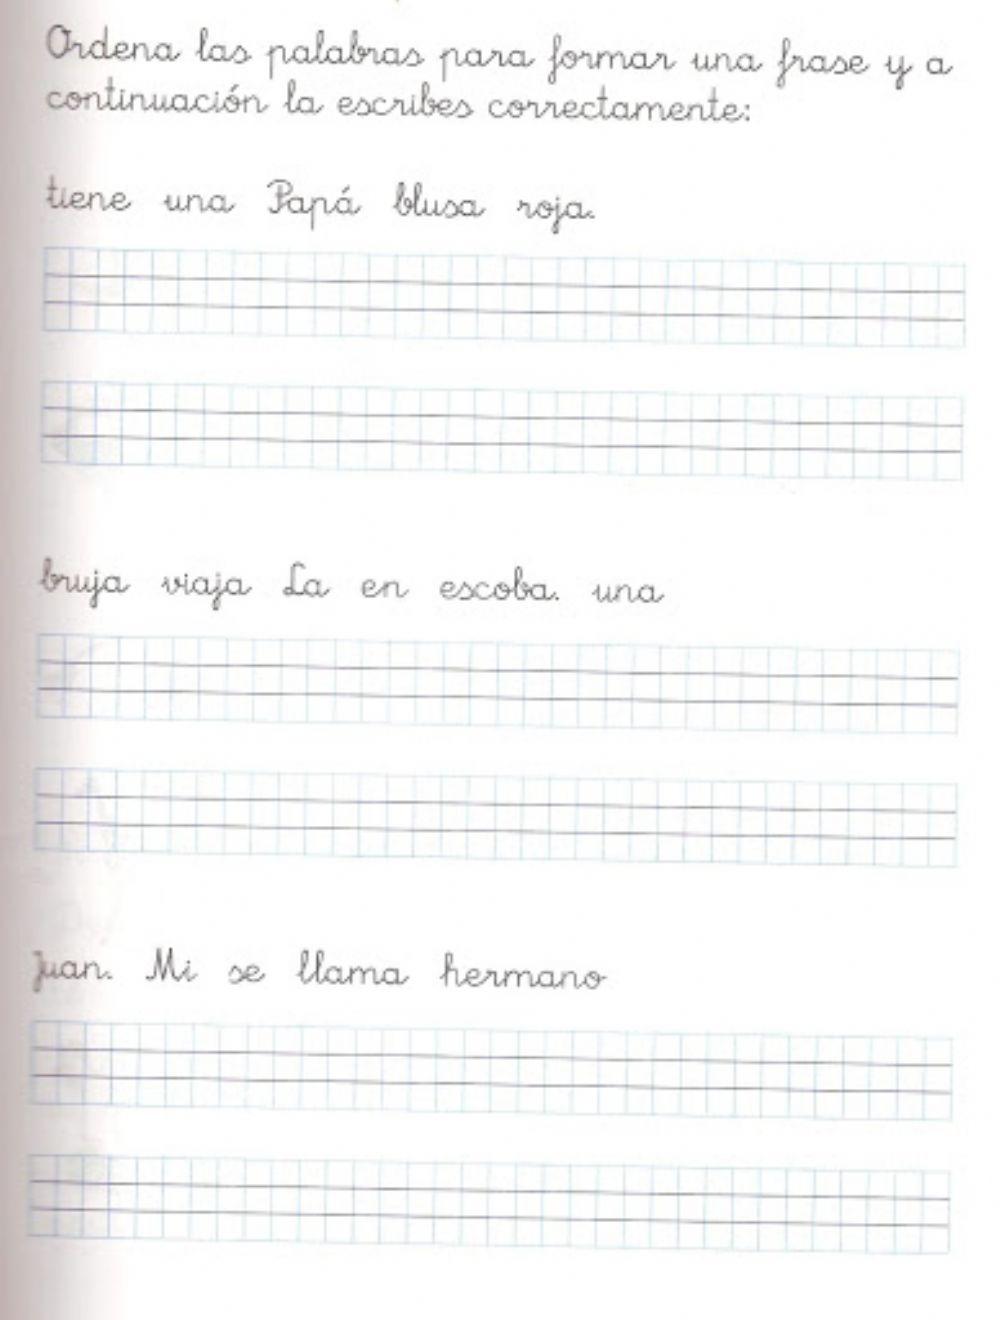 Ordena las palabras para formar una frase y a
continuación la escribes correctamente:
tiene una Papá blusa roja.
bruja viaja La en escoba. una
Juan. Mi se llama hermano